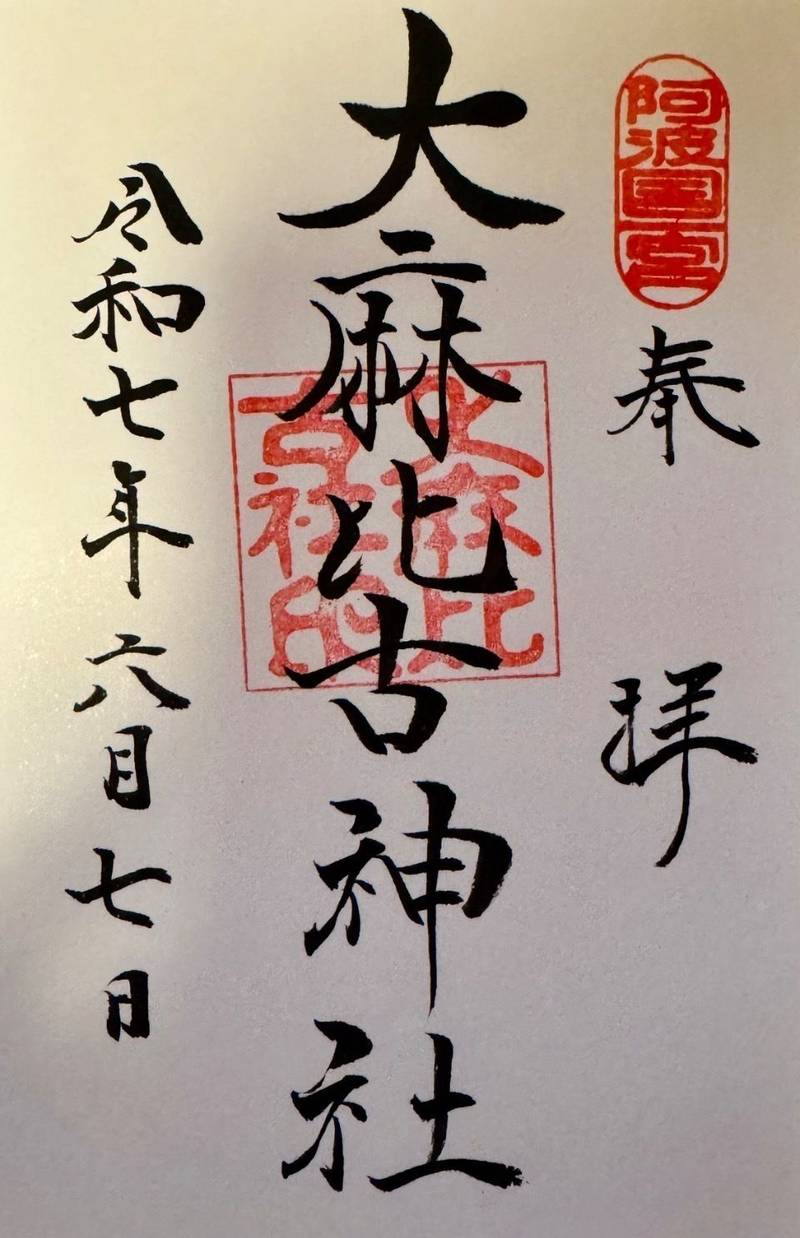 阿波国一宮
奉拝
大麻比古神社
大麻比
古社印
令和七年六月七日